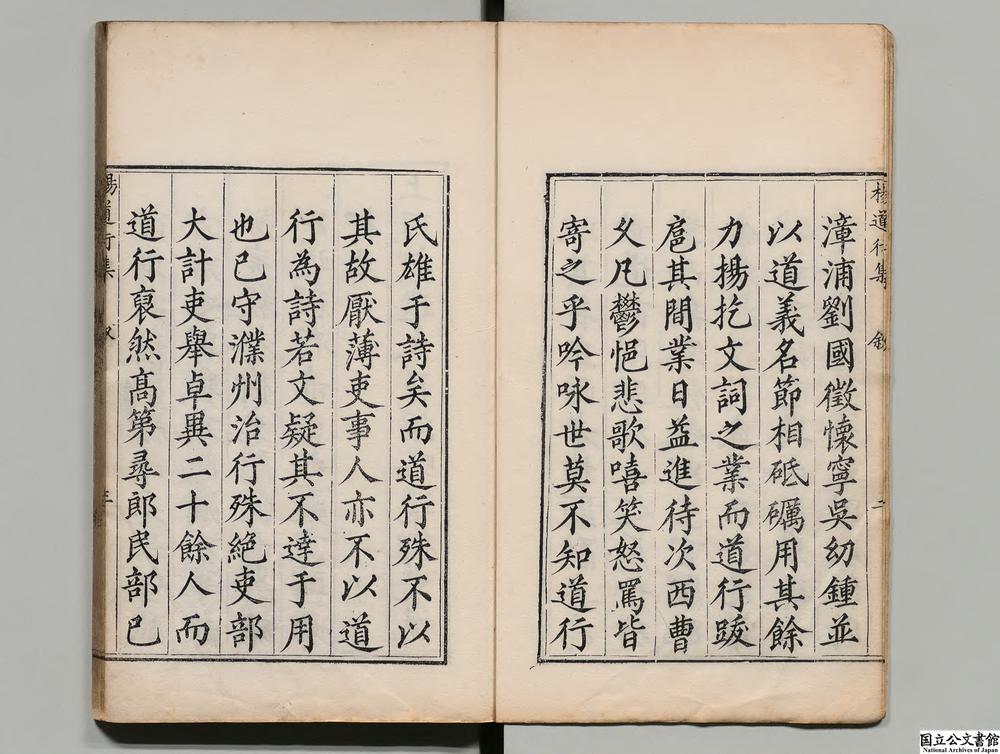 楊道行集 叙 二
漳浦劉國徵懷寧吳幼鍾並
以道義名節相砥礪用其餘
力揚扢文詞之業而道行踆
扈其間業日益進待次西曹
久凡鬱悒悲歌嘻笑怒罵皆
寄之乎吟咏世莫不知道行
氏雄于詩矣而道行殊不以
其故厭薄吏事人亦不以道
行為詩若文疑其不達于用
也已守濮州治行殊絕吏部
大計吏舉卓異二十餘人而
道行裒然高第尋郎民部已
楊道行集 三
国立公文書館
National Archives of Japan